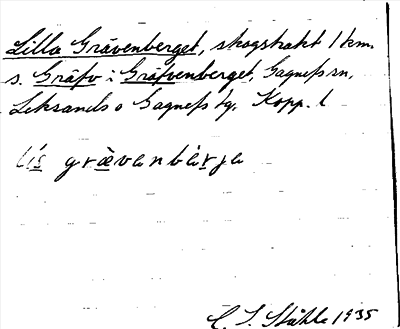 Lilla Grävenberget, skogstrakt 1 km.
s. Gräfv i Gräfvenberget, Gagnefs sn,
Leksands o Gagnefs tg. Kopp. l
lis grävenbärja
C. I. Ståhle 1935